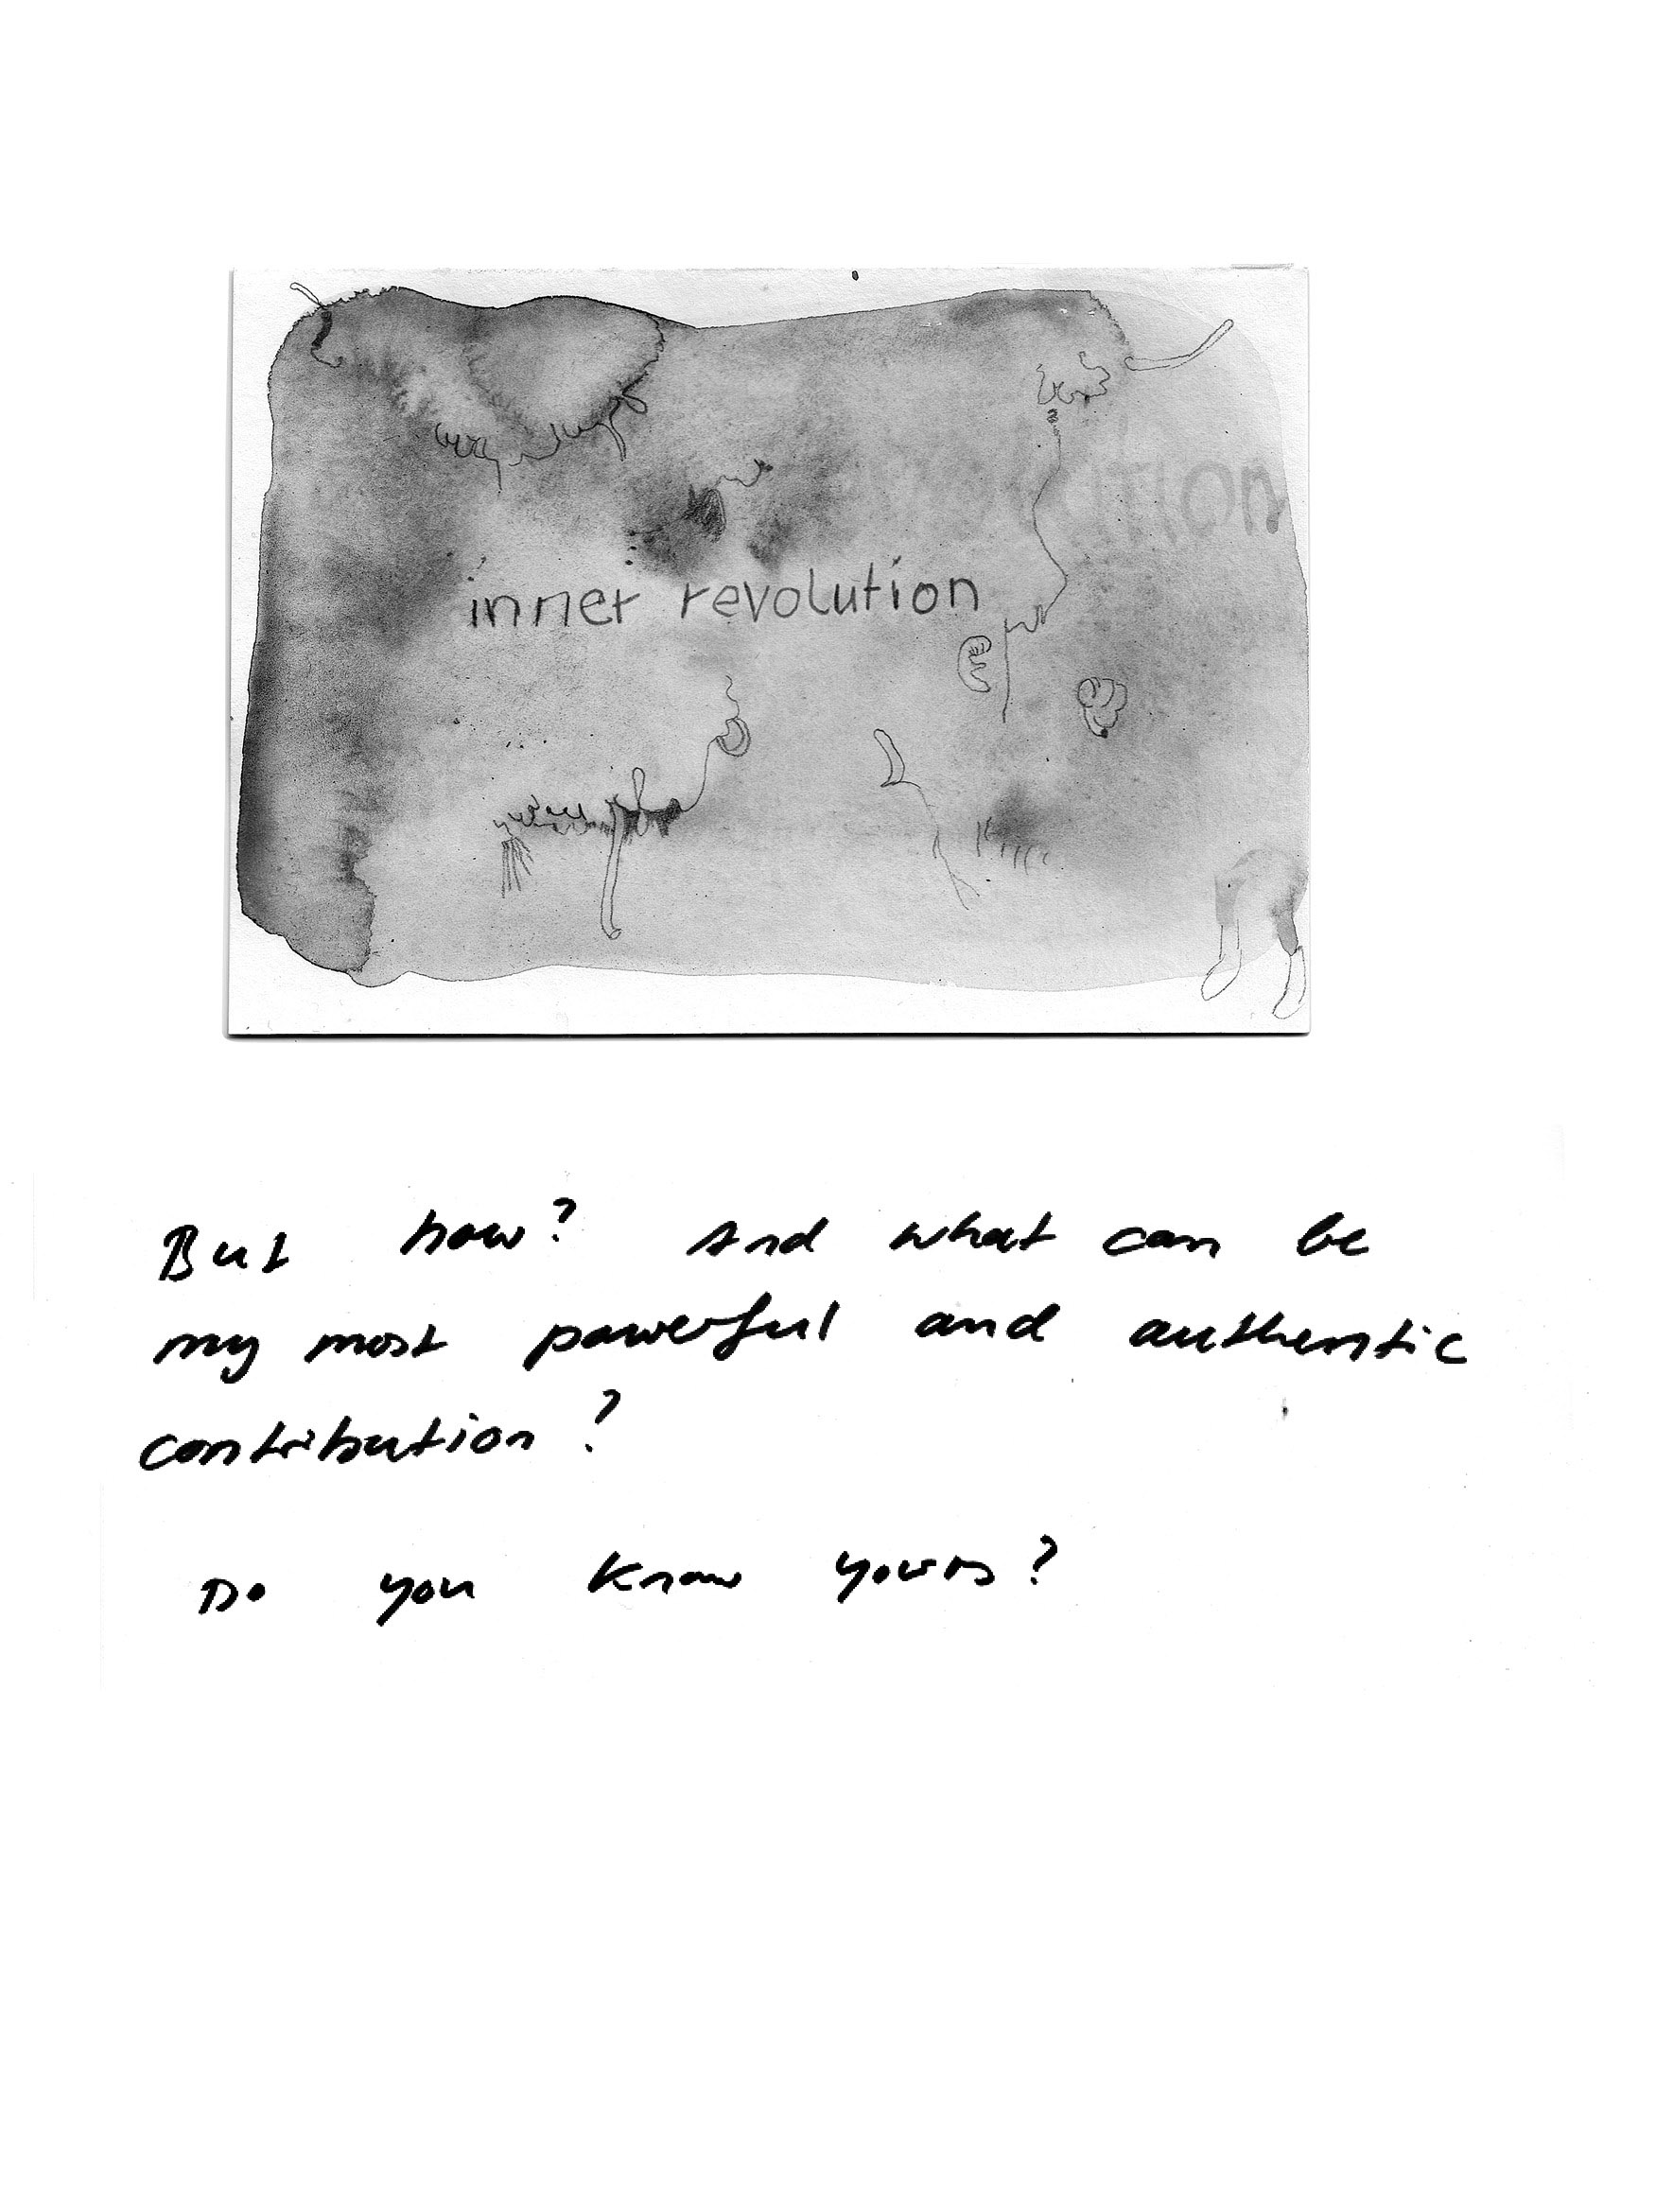 UTION
inner revolution
But how? And what can be
my most powerful and authentic
contribution?
Do you know yours?